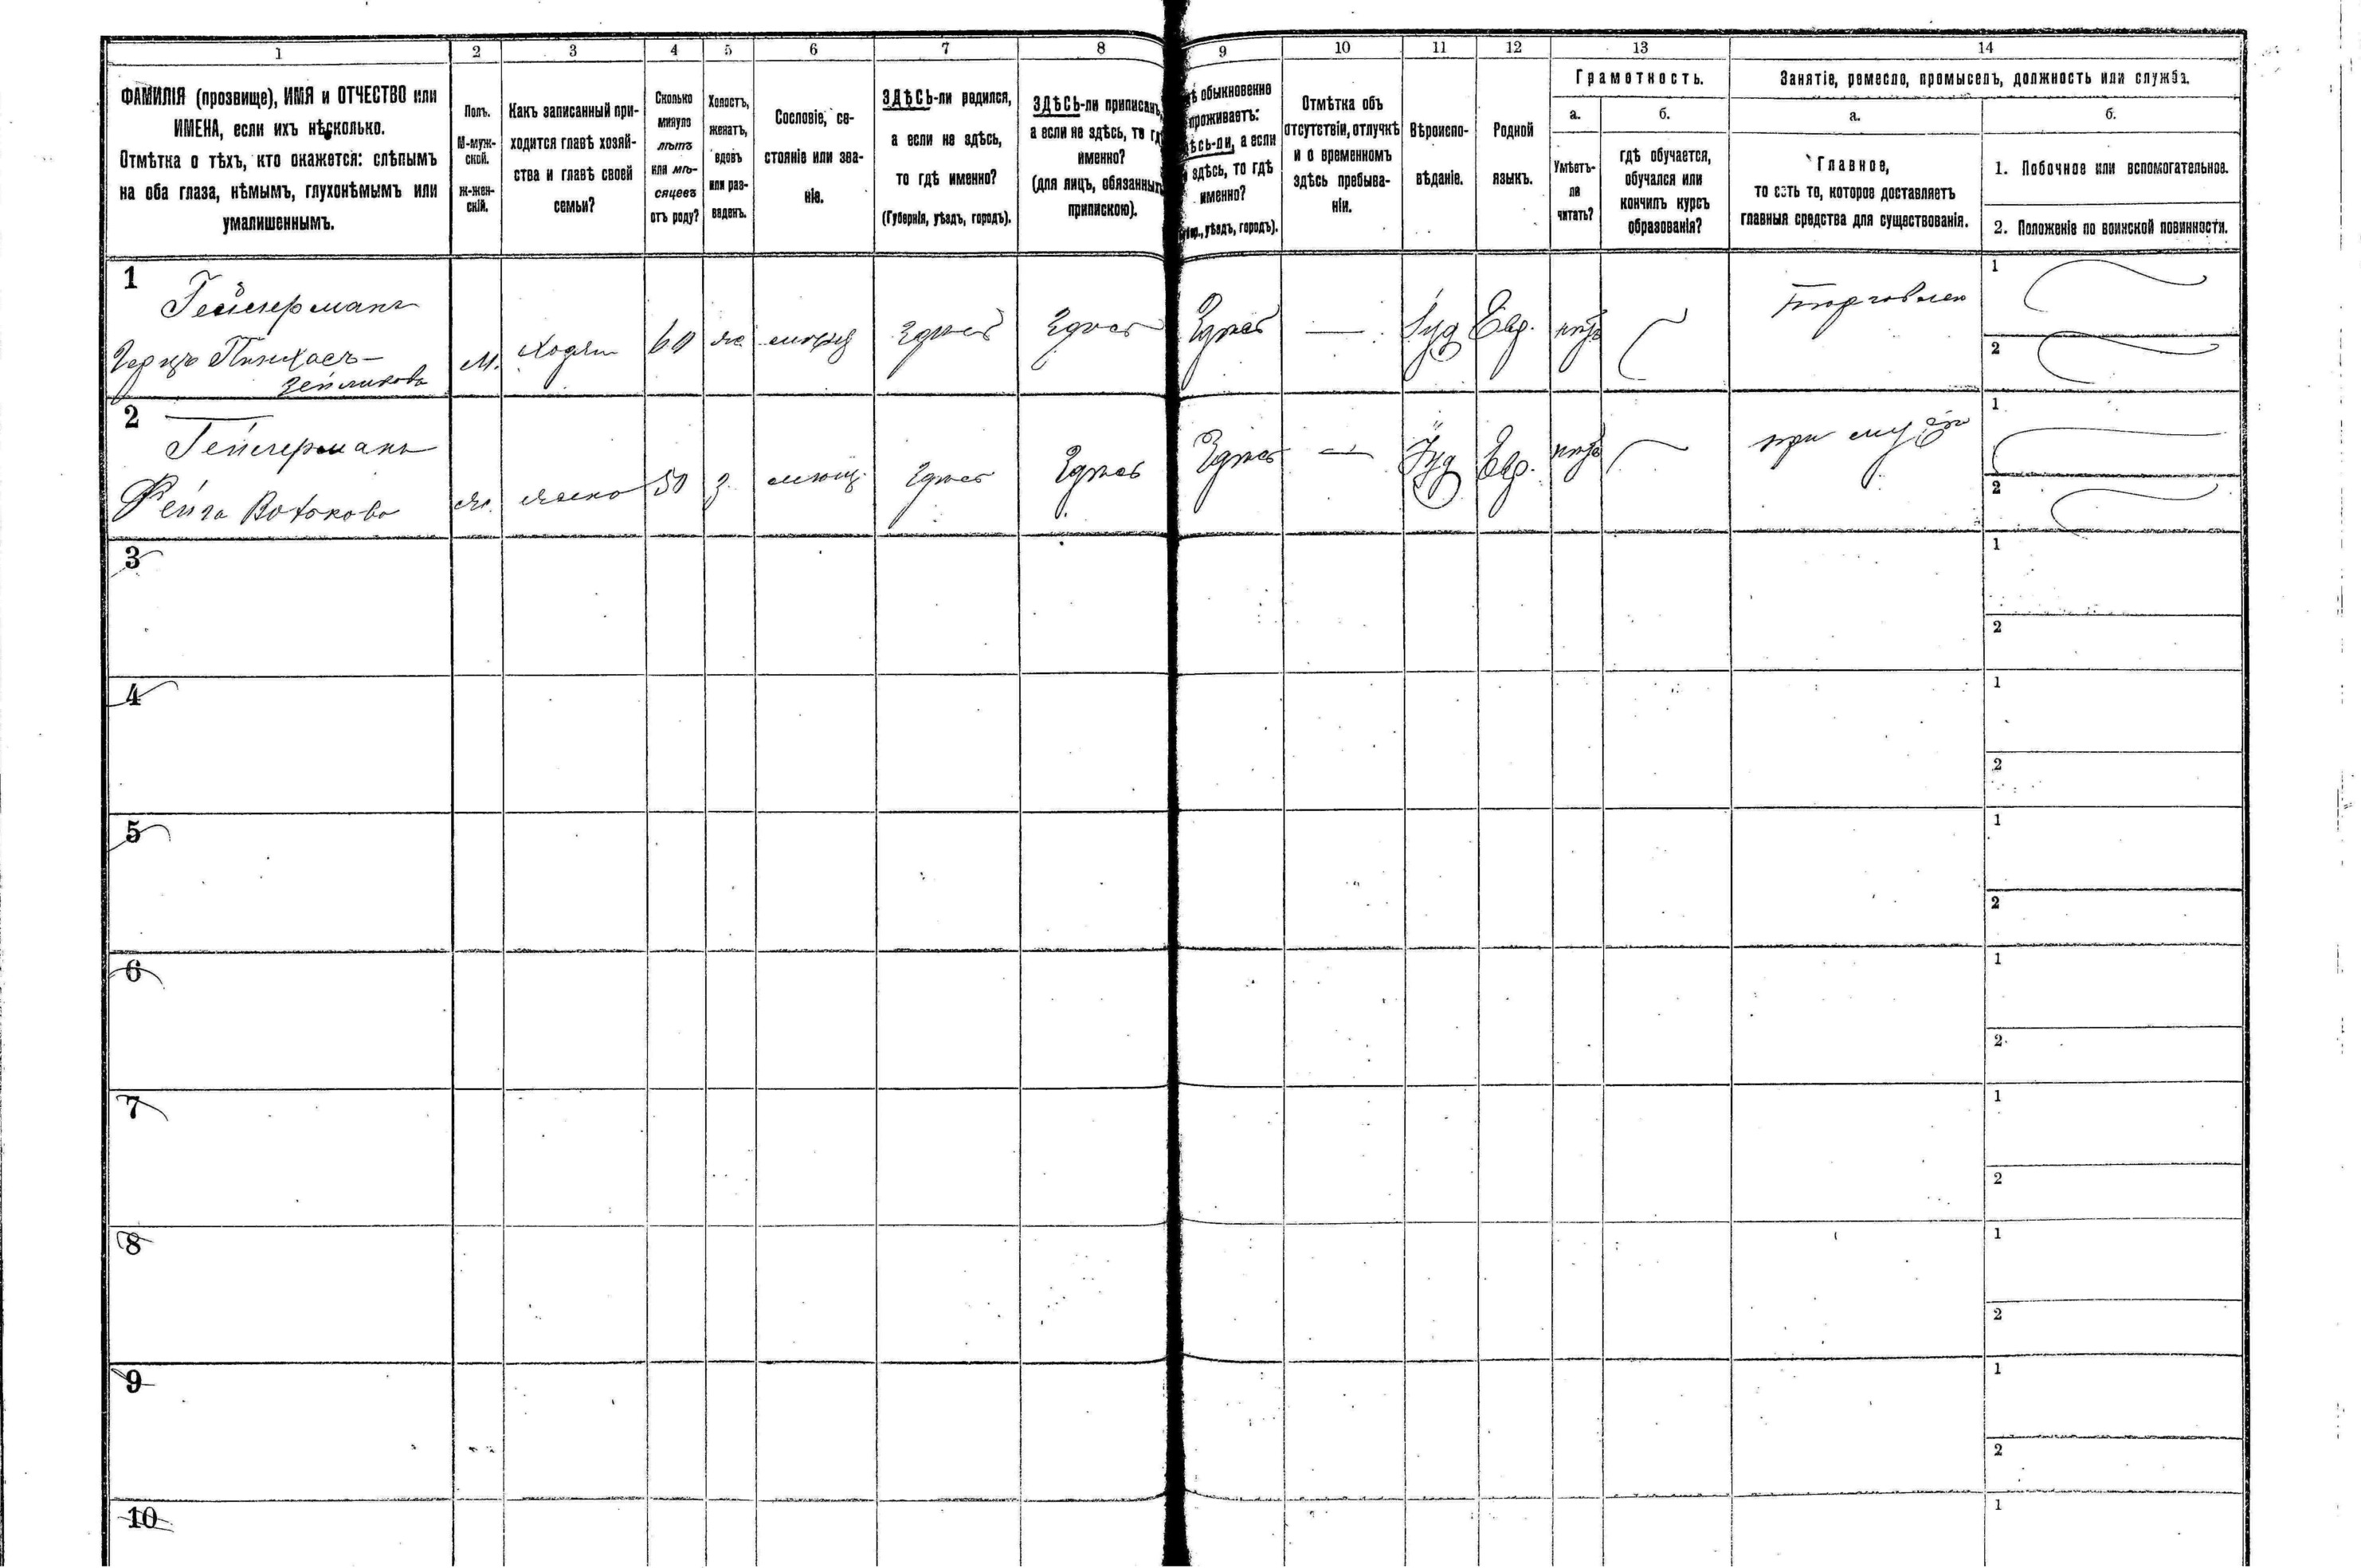 1 2 3 4 5 6 7 8 9 10 11 12 13 14
ФАМИЛІЯ (прозвище), ИМЯ и ОТЧЕСТВО или
ИМЕНА, если ихъ нѣсколько.
Отмѣтка о тѣхъ, кто окажется: слѣпымъ
на оба глаза, нѣмымъ, глухонѣмымъ или
умалишеннымъ.
Полъ.
М-муж-
ской.
ж-жен-
скій.
Какъ записанный при-
ходится главѣ хозяй-
ства и главѣ своей
семьи?
Сколько
минуло
лѣтъ
или мѣ-
сяцевъ
отъ роду?
Холостъ,
женатъ,
вдовъ
или раз-
веденъ.
Сословіе, со-
стояніе или зва-
ніе.
ЗДѢСЬ-ли родился,
а если не здѣсь,
то гдѣ именно?
(Губернія, уѣздъ, городъ).
ЗДѢСЬ-ли приписанъ,
а если не здѣсь, то гд
именно?
(для лицъ, обязанных
припискою).
ѣ обыкновенно
проживаетъ:
ѣсь-ли, а если
здѣсь, то гдѣ
именно?
уѣздъ, городъ).
Отмѣтка объ
отсутствіи, отлучкѣ
и о временномъ
здѣсь пребыва-
ніи.
Вѣроиспо-
вѣданіе.
Родной
языкъ.
Грамотность.
а.
Умѣетъ-
ли
читать?
б.
гдѣ обучается,
обучался или
кончилъ курсъ
образованія?
Занятіе, ремесло, промыселъ, должность или служба.
а.
Главное,
то есть то, которое доставляетъ
главныя средства для существованія.
б.
1. Побочное или вспомогательное.
2. Положеніе по воинской повинности.
1
Гейлерманъ
Герцъ Пинхасъ-
Зейликовъ
М. 60 же Здѣсь Здѣсь Здѣсь — Іуд Евр. нѣтъ торговлею
1
2
2
Гейлерманъ
Фейга
ж. жена 50 з. Здѣсь Здѣсь Здѣсь — Іуд Евр. нѣтъ при мужѣ
1
2
3
1
2
4
1
2
5
1
2
6
1
2
7
1
2
8
1
2
9
1
2
10
1